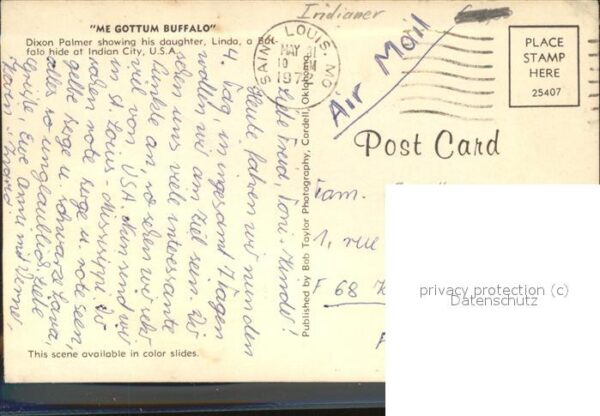 Indianer
"ME GOTTUM BUFFALO"
Dixon Palmer showing his daughter, Linda, a Buf-
falo hide at Indian City, U.S.A.
SAINT LOUIS, MO
MAY
10
1972
Air Mail
PLACE
STAMP
HERE
25407
Post Card
Fam.
1, rue
F 68
privacy protection (c)
Datenschutz
Published by Bob Taylor Photography, Cordell, Oklahoma
Liebe Fredi, Toni + Kinder!
Heute fahren wir nun den
4. Tag, in insgesamt 7 Tagen
wollen wir am Ziel sein. Wir
sehen uns viele interessante
Punkte an, so sehen wir sehr
viel von USA. Nun sind wir
in St. Louis - Mississippi. Wir
sahen rote Berge u. rote Seen,
gelbe Berge u. schwarze Lava,
alles so unglaublich. Liebe
Grüße, Eure Anni mit Werner,
This scene available in color slides.